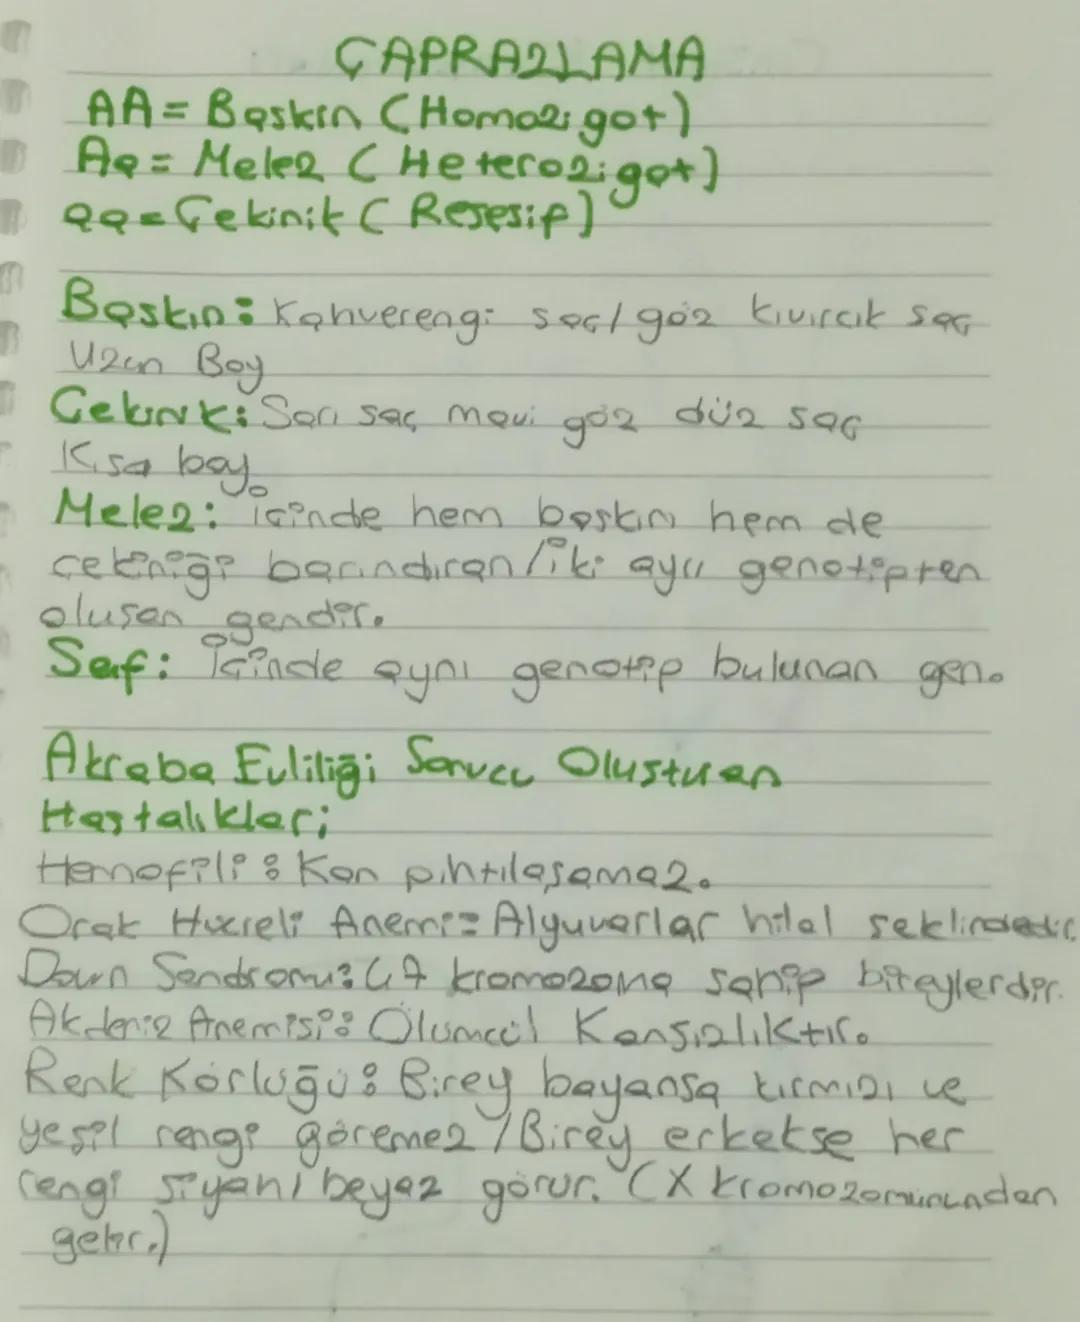 ÇAPRAZLAMA
AA = Baskın (Homozigot)
Aa = Melez (Heterozigot)
aa = Çekinik (Resesif)
Baskın: Kahverengi saç/göz kıvırcık saç
Uzun Boy
Çekinik: Sarı saç mavi göz düz saç
Kısa boy.
Melez: İçinde hem baskın hem de
çekiniği barındıran/iki ayrı genotipten
oluşan gendir.
Saf: İçinde aynı genotip bulunan gen.
Akraba Evliliği Sonucu Oluşturan
Hastalıklar;
Hemofili: Kan pıhtılaşamaz.
Orak Hücreli Anemi: Alyuvarlar hilal şeklindedir.
Down Sendromu: 47 kromozoma sahip bireylerdir.
Akdeniz Anemisi: Ölümcül Kansızlıktır.
Renk Körlüğü: Birey bayansa kırmızı ve
yeşil rengi göremez/Birey erkekse her
rengi siyah/beyaz görür. (X kromozomunundan
gelir.)